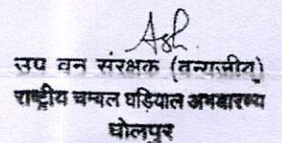 उप वन संरक्षक (वन्यजीव)
राष्ट्रीय चम्बल घड़ियाल अभयारण्य
धोलपुर